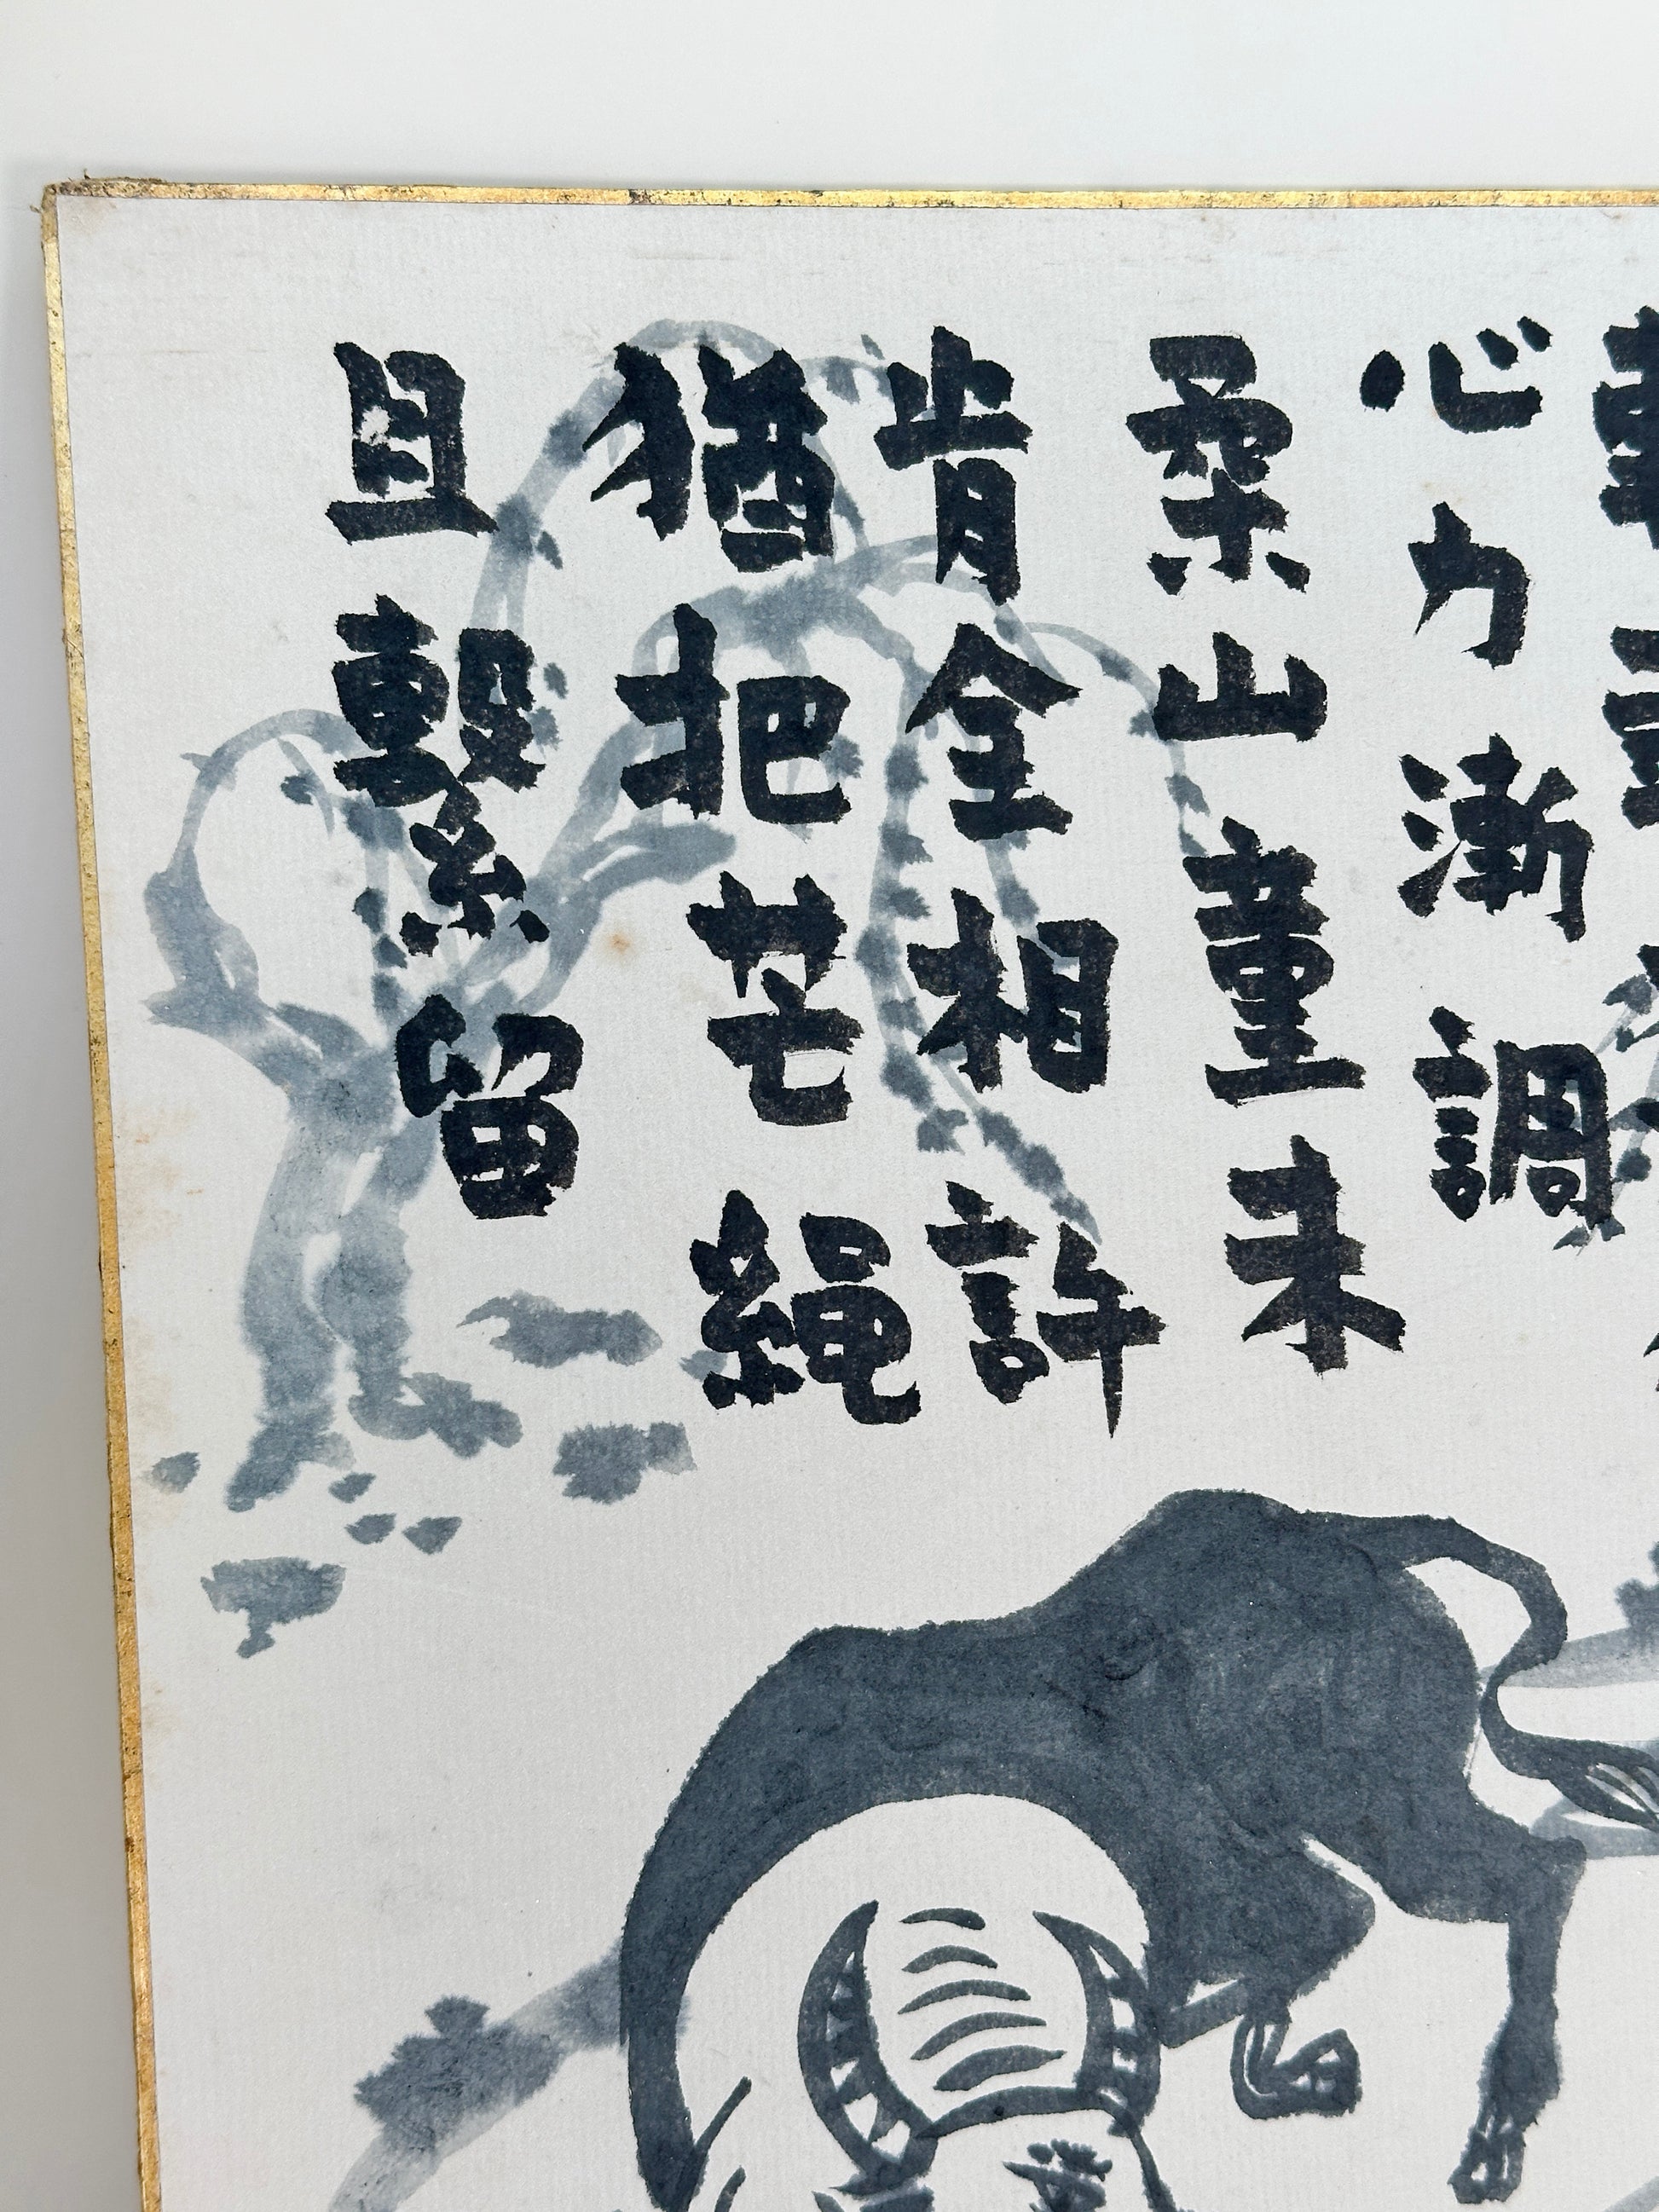 心力漸調
柔山童未
肯全相許
猶把芒縄
且繫留